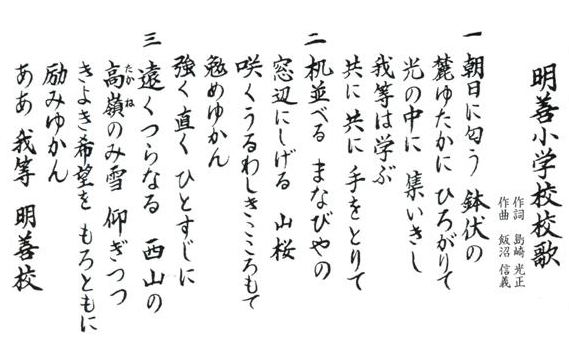 明善小学校校歌
作詞 島崎 光正
作曲 飯沼 信義
一 朝日に匂う 鉢伏の
麓ゆたかに ひろがりて
光の中に 集いきし
我等は学ぶ
共に 共に 手をとりて
二 机並べる まなびやの
窓辺にしげる 山桜
咲くうるわしきこころもて
勉めゆかん
強く 直く ひとすじに
三 遠くつらなる 西山の
高嶺のみ雪 仰ぎつつ
たかね
きよき希望を もろともに
励みゆかん
ああ 我等 明善校